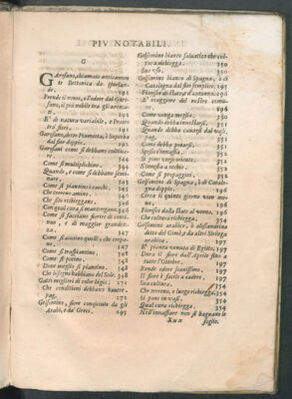 PIV NOTABILI.
G
Garofano, chiamato anticamen-
te Bettonica da ghirlan-
de. 191
Prende il nome, e l'odor dal Garo-
fano, il più nobile tra gli aromati.
E' di natura variabile, e
tra fiori. 191
Garofani, detto Piumetta, è superba
dal fior doppio. 192
Garofani come si debbano coltiva-
re. 344
Come si moltiplichino. 344
Quando, e come si debbano semi-
nare. 344
Come si piantino i
Che terreno amino. 345
Che sito richieggano.
Con qual cura si mantengano. 346
Come si facciano fiorire di conti-
nuo, e di maggior grandez-
za. 347
Come si aiutino quelli, che crepa-
no. 347
Come si traspiantino. 348
Come si potino.
Dove meglio si piantino. 348
Che bisogno habbiano del Sole. 348
Gatti megliori di color bigio. 272
Che conditioni debbano havere.
pag. 272
Gelsomino, fiore conosciuto da gli
Arabi, e da' Greci. 195
Gelsomino bianco salvatico che col-
tura richiegga. 350
Suo uso. 350
Gelsomino bianco di Spagna, ò di
Catalogna dal fior semplice. 195
Fiorisce da state ad autunno. 196
E' maggiore del nostro comu-
ne. 196
Come venga meglio. 350
Quando debba innestarsi. 350
Quando debba cavarsi dal vaso.
pag. 350
Come debba potarsi.
Spesso s'innaffia.
Si pone
S'innesta a occhio.
Come si propaghi. 350
Gelsomino di Spagna, ò di Catalo-
gna doppio. 196
Dura il quinto giorno vivo
ne. 196
Fiorisce dalla state al verno. 196
Che coltura richiegga. 353
Gelsomino arabico, è
detto del Gimbe da altri Siringa
arabica. 197
E' pianta venuta di Egitto. 197
Dura il fiore dall'Aprile sino a
tutto l'Ottobre. 197
Rende odore soavissimo. 197
Il fiore è facile a cadere. 197
Sua coltura. 354
Che terreno, e luogo richiegga. 354
Si pone in vasi. 354
Qual cura richiegga. 354
Nell'innaffiare non si bagnano le
foglie.